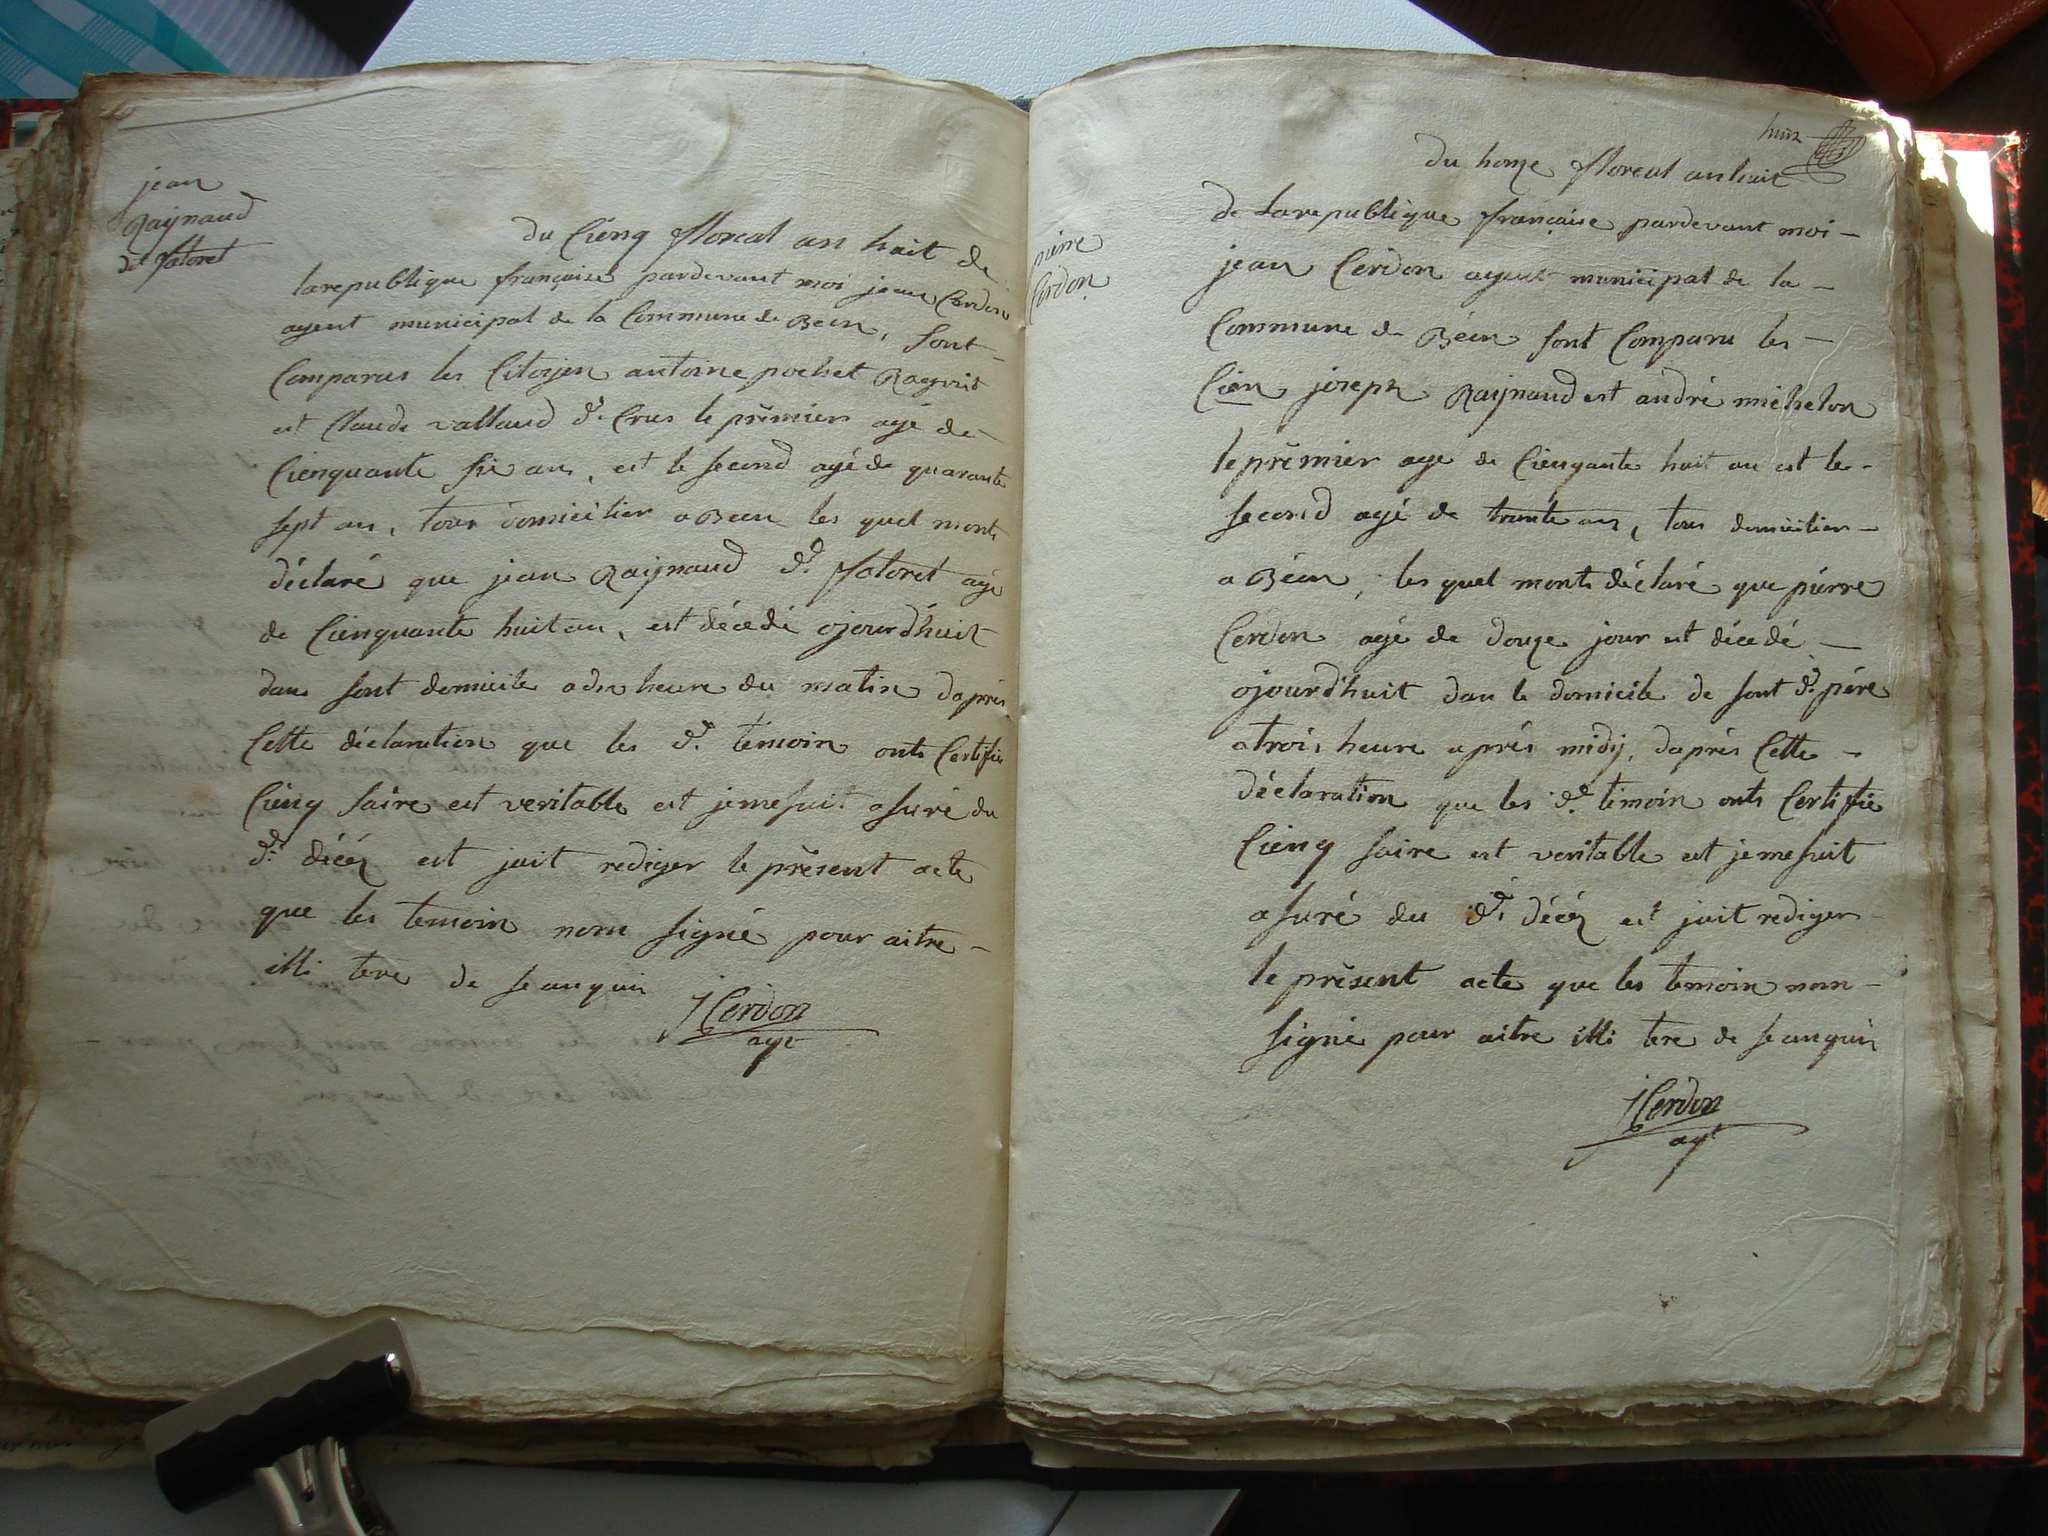 jean
Raijnaud
dt fatoret
du Cienq floreal an huit de
larepublique française pardevant moi jean Cerdon
agent municipal de la Commune de Bein, sont
Comparus les Citoijen antoine pochet
et Claude vallaud dt Crus le prémier agé de
Cienquante sie ans, est le second agé de quarante
sept an, tous domicilier a Bein les quel monts
déclaré que jean Raijnaud dt fatoret agé
de Cienquante huit an, est décédé ojourd'huit
dans sont domicile a dix heure du matin daprés
Cette déclaration que les dt temoin onts Certifié
Cienq saire est veritable est jemesuit asuré du
dt décéz est jait rediger le présent acte
que les temoin nom signé pour aitre
illi tere de se anquin
J Cerdon
agt
huit
du honze floreal an huit
de Larepublique française pardevant moi
jean Cerdon agent municipal de la
Commune de Béin sont Comparu les
Cien joseph Raijnaud est andré michelon
le prémier age de Cienqante huit an est le
second agé de trante an, tous domicilier
a Béin, les quel monts déclaré que piérre
Cerdon agé de douze jour est décédé
ojourd'huit dan le domicile de sont dt pére
a trois heure aprés midij, daprés Cette
déclaration que les dt témoin onts Certifié
Cienq saire est veritable est jemesuit
asuré du dt décéz est jait rediger
le présent acte que les temoin nom
signé pour aitre illi tere de se anquin
J Cerdon
agt
pierre
Cerdon